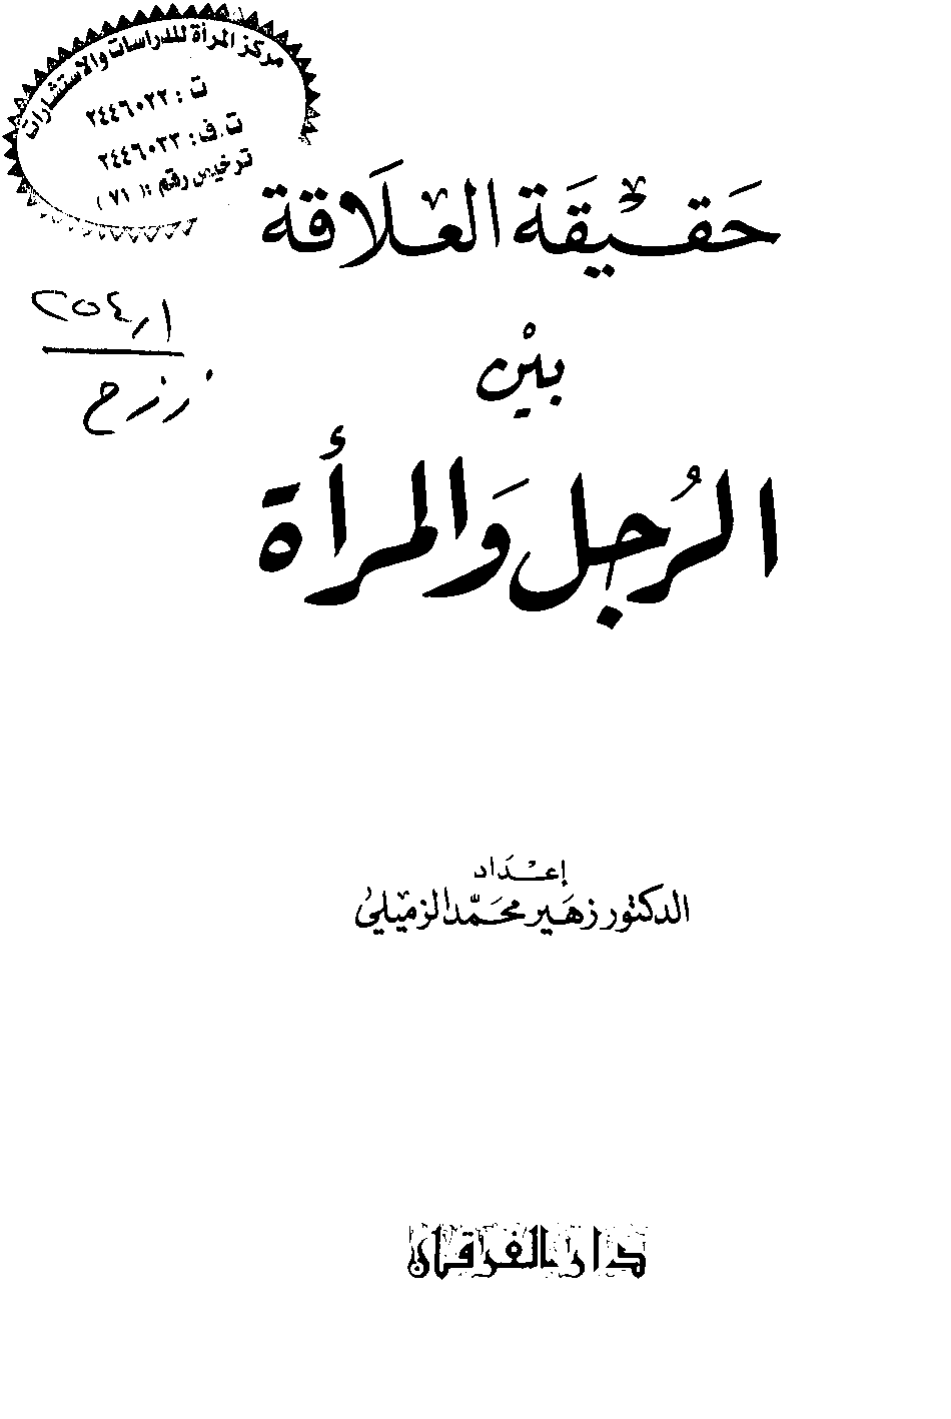 مركز المرأة للدراسات والاستشارات
ت : ٢٤٤٦٠٢٢
ت.ف : ٢٤٤٦٠٣٣
ترخيص رقم : ( ٧١ )
حَقيْقَة العْلَاقة
٢٥٤٫١
ز ز ح
بيْن
الرُجل وَالمرأة
إعْدَاد
الدكتور زهَير محَمَّد الزميلي
دار الفرقان